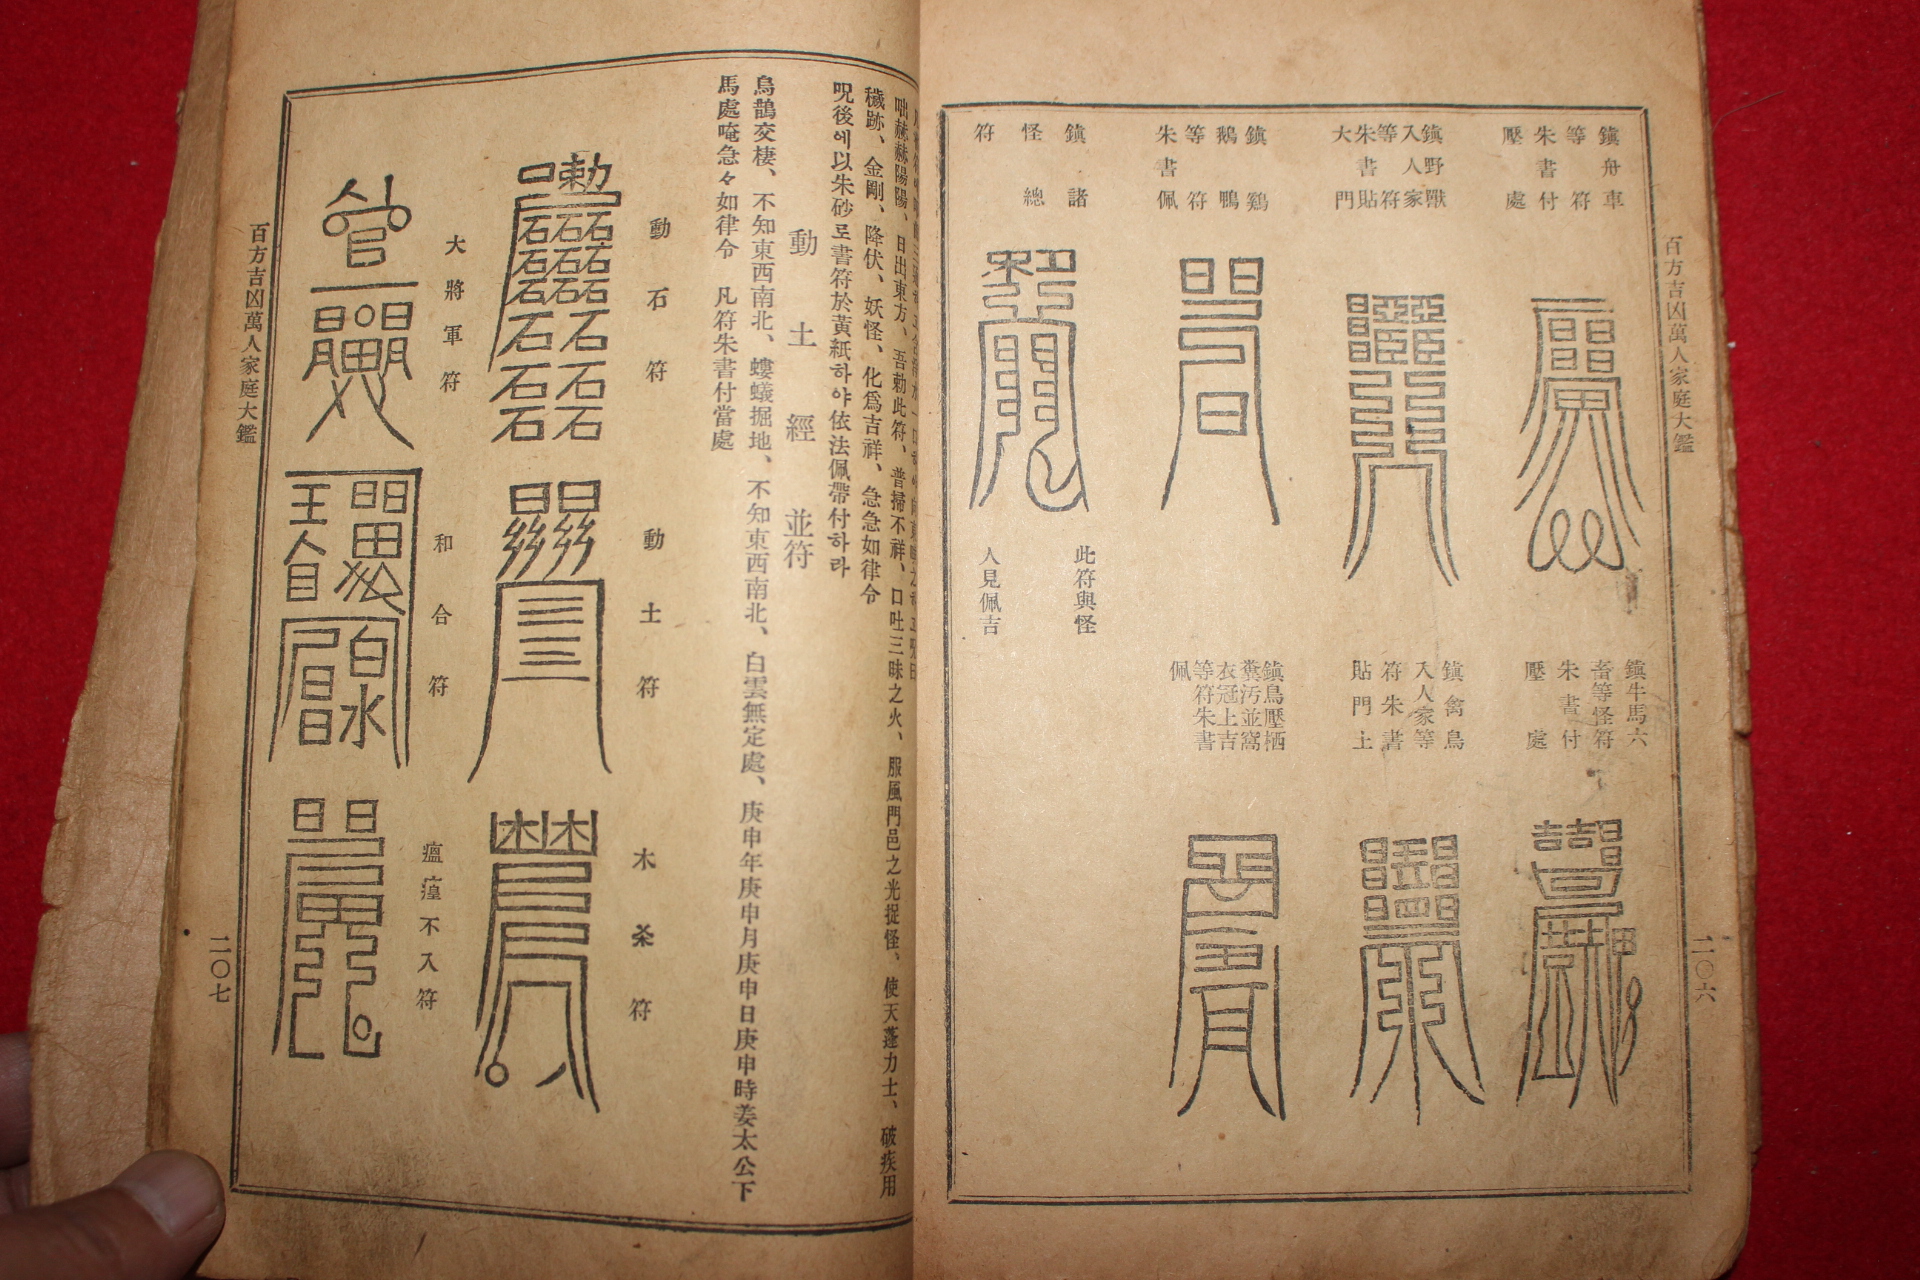 百方吉凶萬人家庭大鑑
二〇六
鎭舟車
等符
朱書付
壓處
鎭野獸
入人家
等符
朱書貼
大門
鎭鷄
鵝鴨
等符
朱書佩
鎭諸
怪總
符
此符與怪
人見佩吉
鎭牛馬六
畜等怪符
朱書付
壓處
鎭禽鳥
入人家等
符朱書
貼門上
鎭鳥壓栖
糞汚並窩
衣冠上吉
等符朱書
佩
咄赫赫陽陽、日出東方、吾勅此符、普掃不祥、口吐三昧之火、服風門邑之光捉怪、使天蓬力士、破疾用
穢跡、金剛、降伏、妖怪、化爲吉祥、急急如律令
呪後에以朱砂로書符於黃紙하야依法佩帶付하라
動土經並符
烏鵲交棲、不知東西南北、螻蟻掘地、不知東西南北、白雲無定處、庚申年庚申月庚申日庚申時姜太公下
馬處唵急々如律令 凡符朱書付當處
動石符
動土符
木杀符
大將軍符
和合符
瘟㾮不入符
百方吉凶萬人家庭大鑑
二〇七